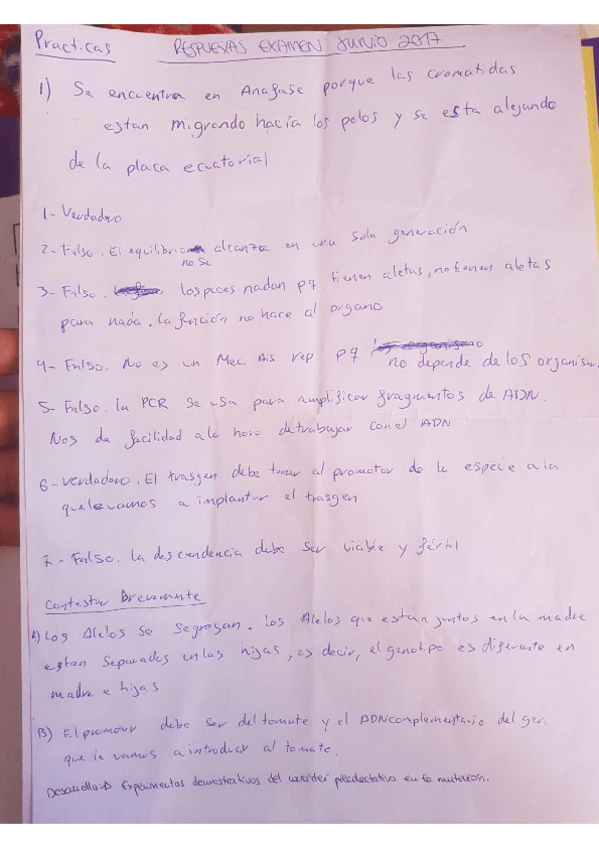 Practicas RESPUESTAS EXAMEN JUNIO 2017
1) Se encuentra en Anafase porque las cromatidas
estan migrando hacia los polos y se esta alejando
de la placa ecuatorial
1- Verdadero
2- Falso. El equilibrio alcanza en una sola generación
no se
3- Falso. los peces nadan pq tienen aletas, no tienen aletas
para nada. La función no hace al organo
4- Falso. No es un Mec. Ais. rep pq no depende de los organism.
5- Falso. la PCR se usa para amplificar fragmentos de ADN.
Nos da facilidad a la hora de trabajar con el ADN
6- Verdadero. El trasgen debe tener al promotor de la especie a la
que le vamos a implantar el trasgen
7- Falso. la descendencia debe ser viable y fértil
Contestar Brevemente
A) Los Alelos se segregan. Los Alelos que estan juntos en la madre
estan separados en las hijas, es decir, el genotipo es diferente en
madre e hijas
B) El promotor debe ser del tomate y el ADN complementario del gen
que le vamos a introducir al tomate.
Desarrollo → Experimentos demostrativos del carácter preadaptativo en la mutación.